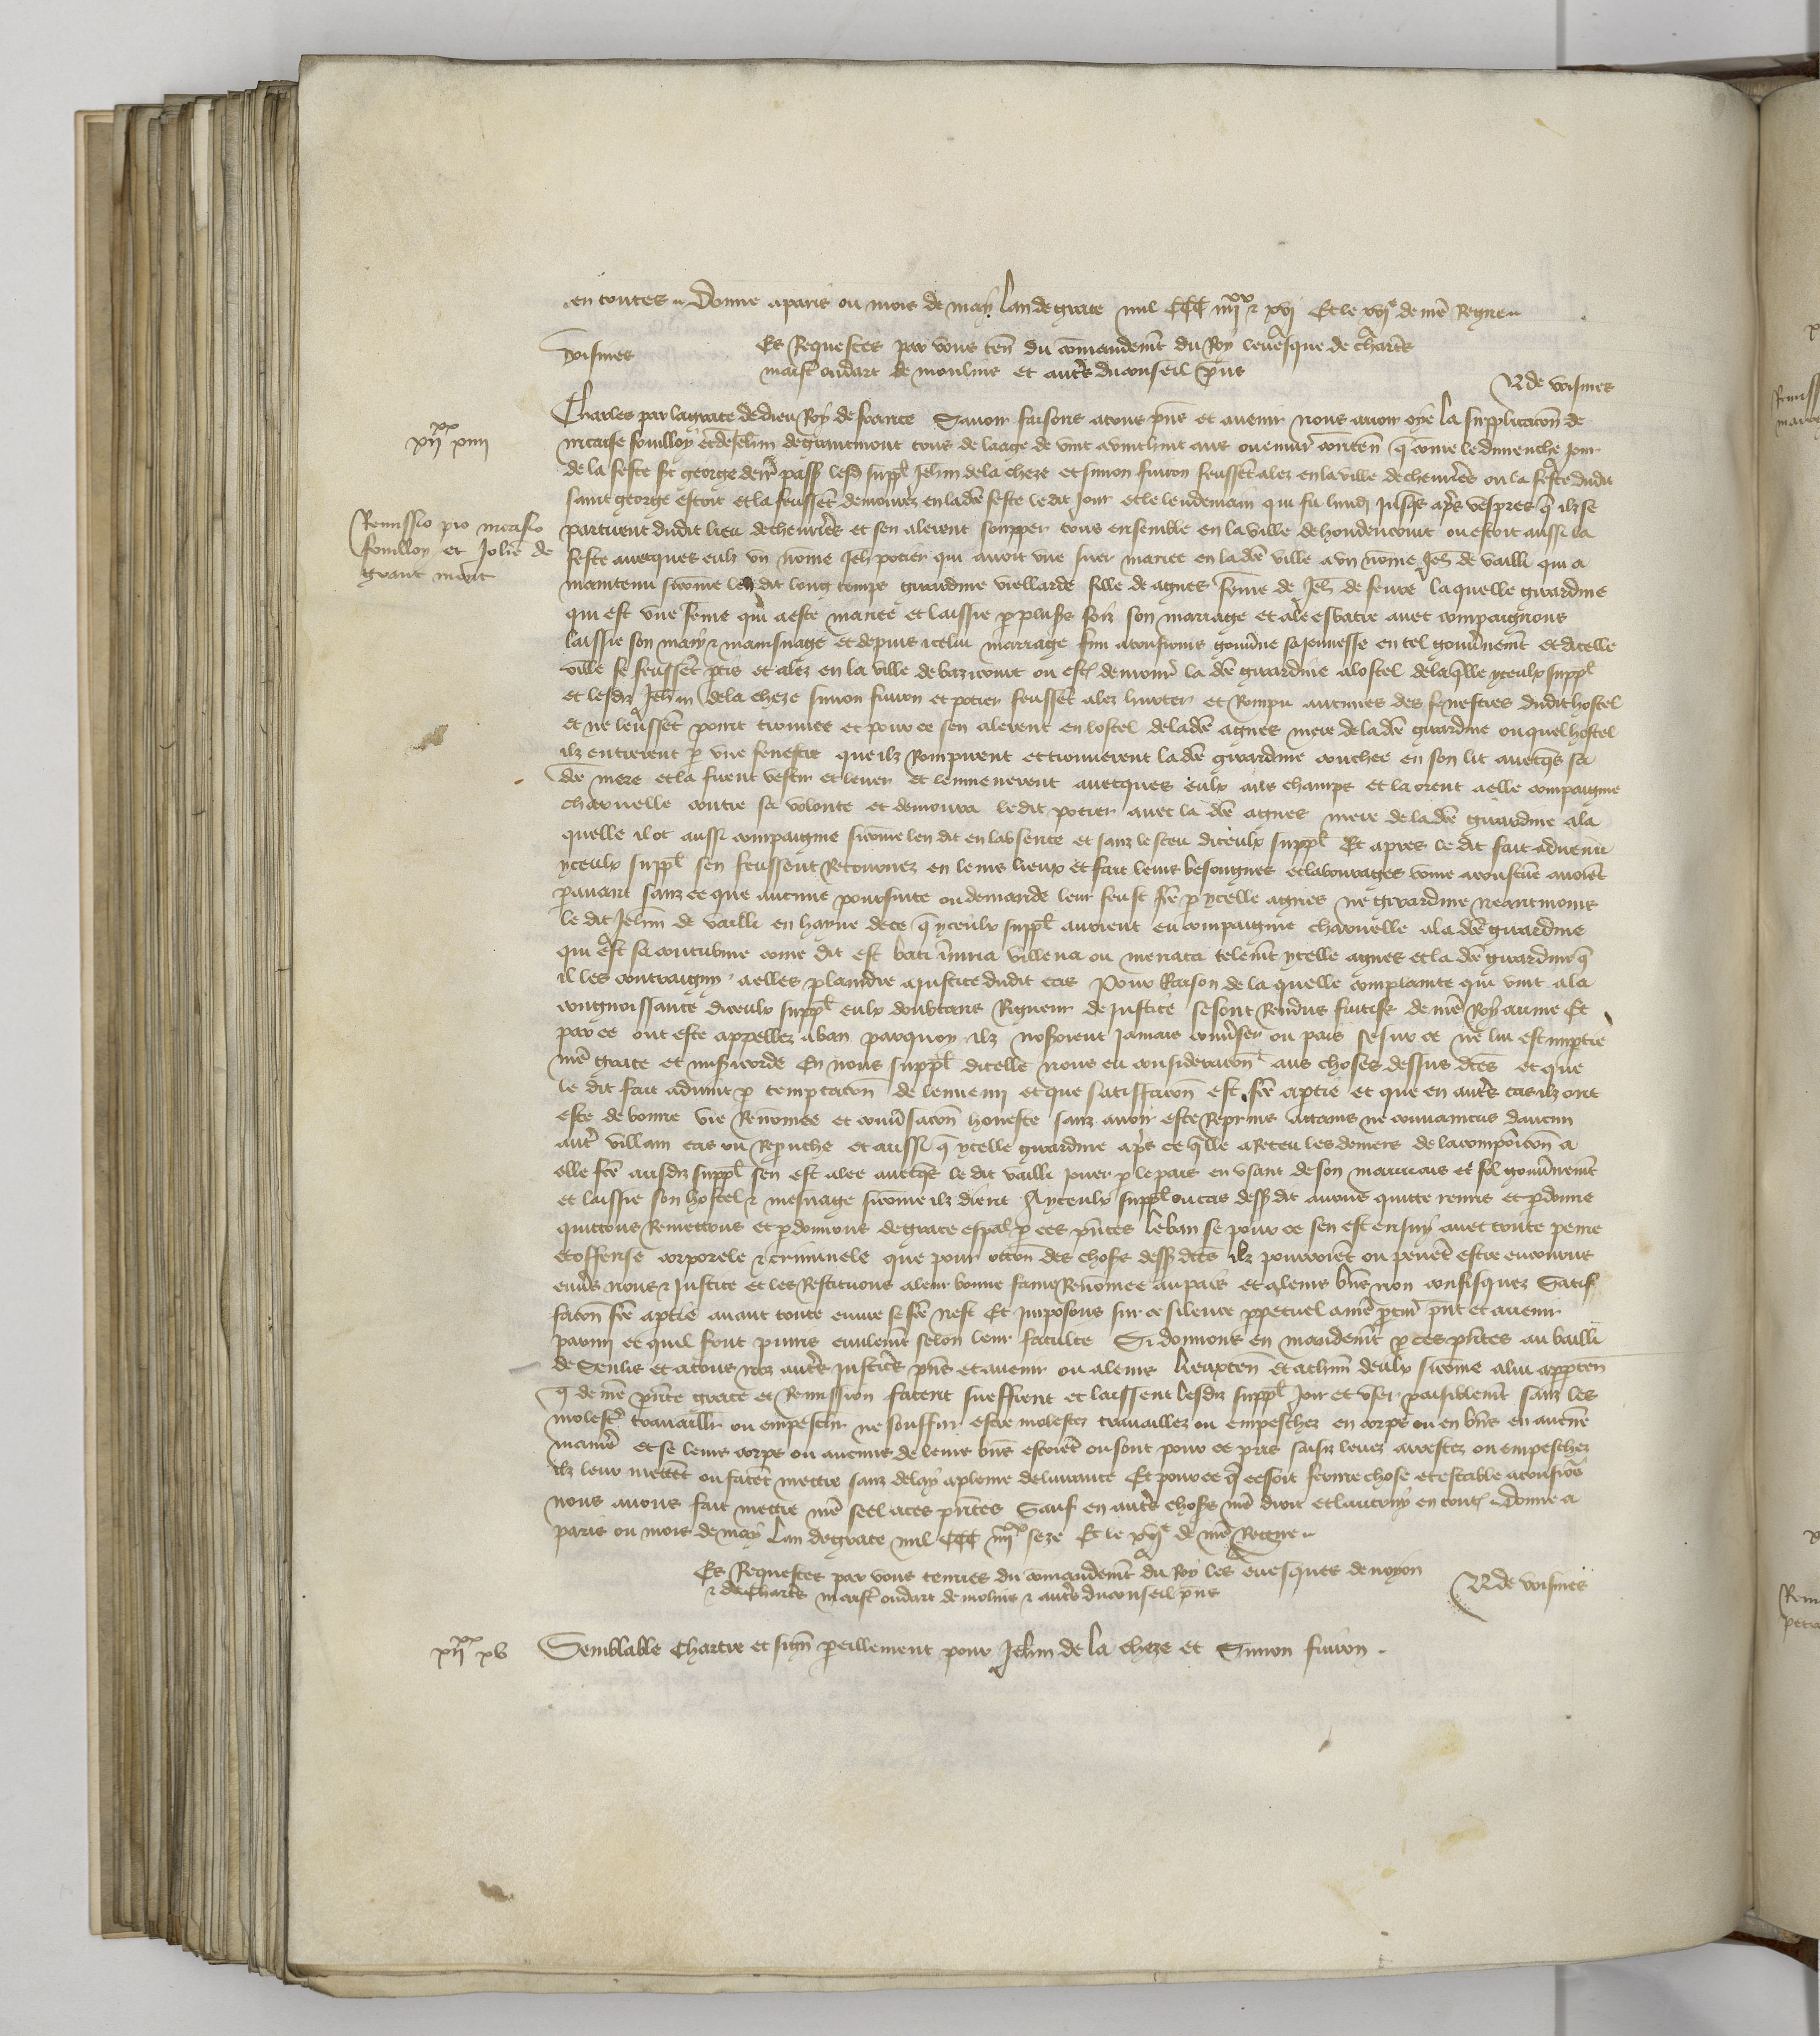 en toutes. Donne a paris ou mois de may Lan de grace mil CCC iiii xx & xvi Et le xvi e de nre Regne
Es Requestes par vous ten du comandemt du Roy levesque de chartres
voismes
maist oudart de moulins et autres du conseil pns
N de voismes
Charles par la grace de dieu Roy de france Savoir faisons a tous pns et avenir nous avoir oye la supplicacon de
xii xx xiiii
mcaise fouilloy et de Jehin de grantmont tous de laage de vint a vint huit ans ou environ conten que come le dimenche jour
de la feste st george derr passe lesd suppl Jehin de la cheze et simon fuiron feussent alez en la ville de chevrieres ou la feste dudit
saint george estoit et la feussent demourez en la de feste le dit jour et le lendemain qui fu lundi jusques apres vespres que ilz se
Remissio pro nicasio
fouilloy et Johe de
grant mont
partirent dudit lieu de chevrieres et sen alerent soupper tous ensemble en la ville de houdencourt ou estoit aussi la
feste avecques eulx un nome Jeh potier qui avoit une suer mariee en la de ville a un nome Jeh de vailli qui a
maintenu sicome len dit long temps girardine viellarde fille de agnes feme de Jeh de feure laquelle girardine
qui est une feme qui a este mariee et laissie p plusrs foiz son mariage et alee esbatre avec compaignons
laissie son mary & mainsnage et depuis icelui mariage fini a tousjours gouverne sa jeunesse en tel gouvernemt et dicelle
ville se feussent ptis et alez en la ville de bazicourt ou est demour la de girardine a lostel de laquelle yceulx suppl
et lesdiz Jehin de la cheze simon fuiron et potier feussent alez hurter et Rompu aucunes des fenestres dudit hostel
et ne leussent point trouvee et pour ce sen alerent en lostel de lade agnes mere de lade girardine ouquel hostel
ilz entrerent p une fenestre que ilz Rompirent et trouverent lade girardine couchee en son lit avecqs sa
de mere et la firent vestir et lever et lenmenerent avecques eulx aus champs et la orent a elle compaignie
charnelle contre sa volente et demoura ledit potier avec la de agnes mere de lade girardine a la
quelle il ot aussi compaignie sicome len dit en labsence et sanz le sceu diceulx suppl Et apres le dit fait advenu
yceulx suppl sen feussent Retournez en leurs lieux et fait leurs besongnes et labourages come acoustume avoient
pavant sanz ce que aucune poursuite ou demande leur feust fce p ycelle agnes ne girardine neantmoins
le dit Jehin de vailli en hayne de ce q yceulx suppl avoient eu compaignie charnelle a lade girardine
qui est sa concubine come dit est bati injuria villena ou menaca telemt ycelle agnes et la de girardine q
il les contraigny a elles plaindre a justice dudit cas Pour Raison de la quelle complainte qui vint a la
congnoissance diceulx suppl eulx doubtans Rigueur de justice se sont Rendus fuitifs de nre Royaume Et
par ce ont este appellez a ban parquoy ilz noseroient jamais converser ou pais se sur ce ne lui est imptie
nre grace et misericorde En nous suppl dicelle nous eu consideracon aus choses dessus dces et que
le dit fait advint p temptacon de lennemi et que satisfacon est fce a ptie et que en autres cas ilz ont
este de bonne vie Renomee et conversacon honeste sanz avoir este Reprins attains ne convaincus daucun
autre villain cas ou Reprouche et aussi q ycelle girardine apres ce qlle a Receu les deniers de la composicon a
elle fce ausdiz suppl sen est alee avecqs le dit vailli jouer p le pais en usant de son mauvais et fol gouvernemt
et laissie son hostel & mesnage sicome ilz dient A yceulx suppl ou cas dessus dit avons quitte remis et pdonne
quittons Remettons et pdonnons de grace espal p ces pntes le ban se pour ce sen est ensuy avec toute peine
et offense corporele & criminele que pour occon des choses dessus dces ilz pourroient ou peuent estre encourus
envers nous & justice et les Restituons a leur bonne fame Renomee au pais et a leurs bns non confisquez Satif
facon fce a ptie avant toute euvre se fce nest Et imposons sur ce silence ppetuel a nre pcur pnt et avenir
parmi et quil soient punis civilemt selon leur faculte Si donnons en mandemt p ces pntes au bailli
de Senlis et a tous noz autres justiciers pns et avenir ou a leurs lieuxten et achun deulx sicome a lui apptien
q de nre pnte grace et Remission facent sueffrent et laissent lesdiz suppl joir et user paisiblemt sanz les
molester travaillir ou empeschir ne souffrir estre molestez travaillez ou empeschez en corps ou en bns en aucune
maniere et se leurs corps ou aucuns de leurs bns estoient ou sont pour ce pris saisiz levez arrestez ou empeschez
ilz leur mettent ou facent mettre sanz delay a pleine delivrance Et pour ce q ce soit ferme chose et estable a tousjors
nous avons fait mettre nre seel a ces pntes Sauf en autres choses nre droit et lautruy en toutes Donne a
paris ou mois de may Lan de grace mil CCC iiii xx seze Et le xvi e de nre Regne
Es Requestes par vous tenues du comandemt du Roy les evesques de noyon
& de chartres maist oudart de molins & autres du conseil pns
N de voismes
xii xx xv
Semblable Chartre et sign peillement pour Jehin de la cheze et Simon fuiron